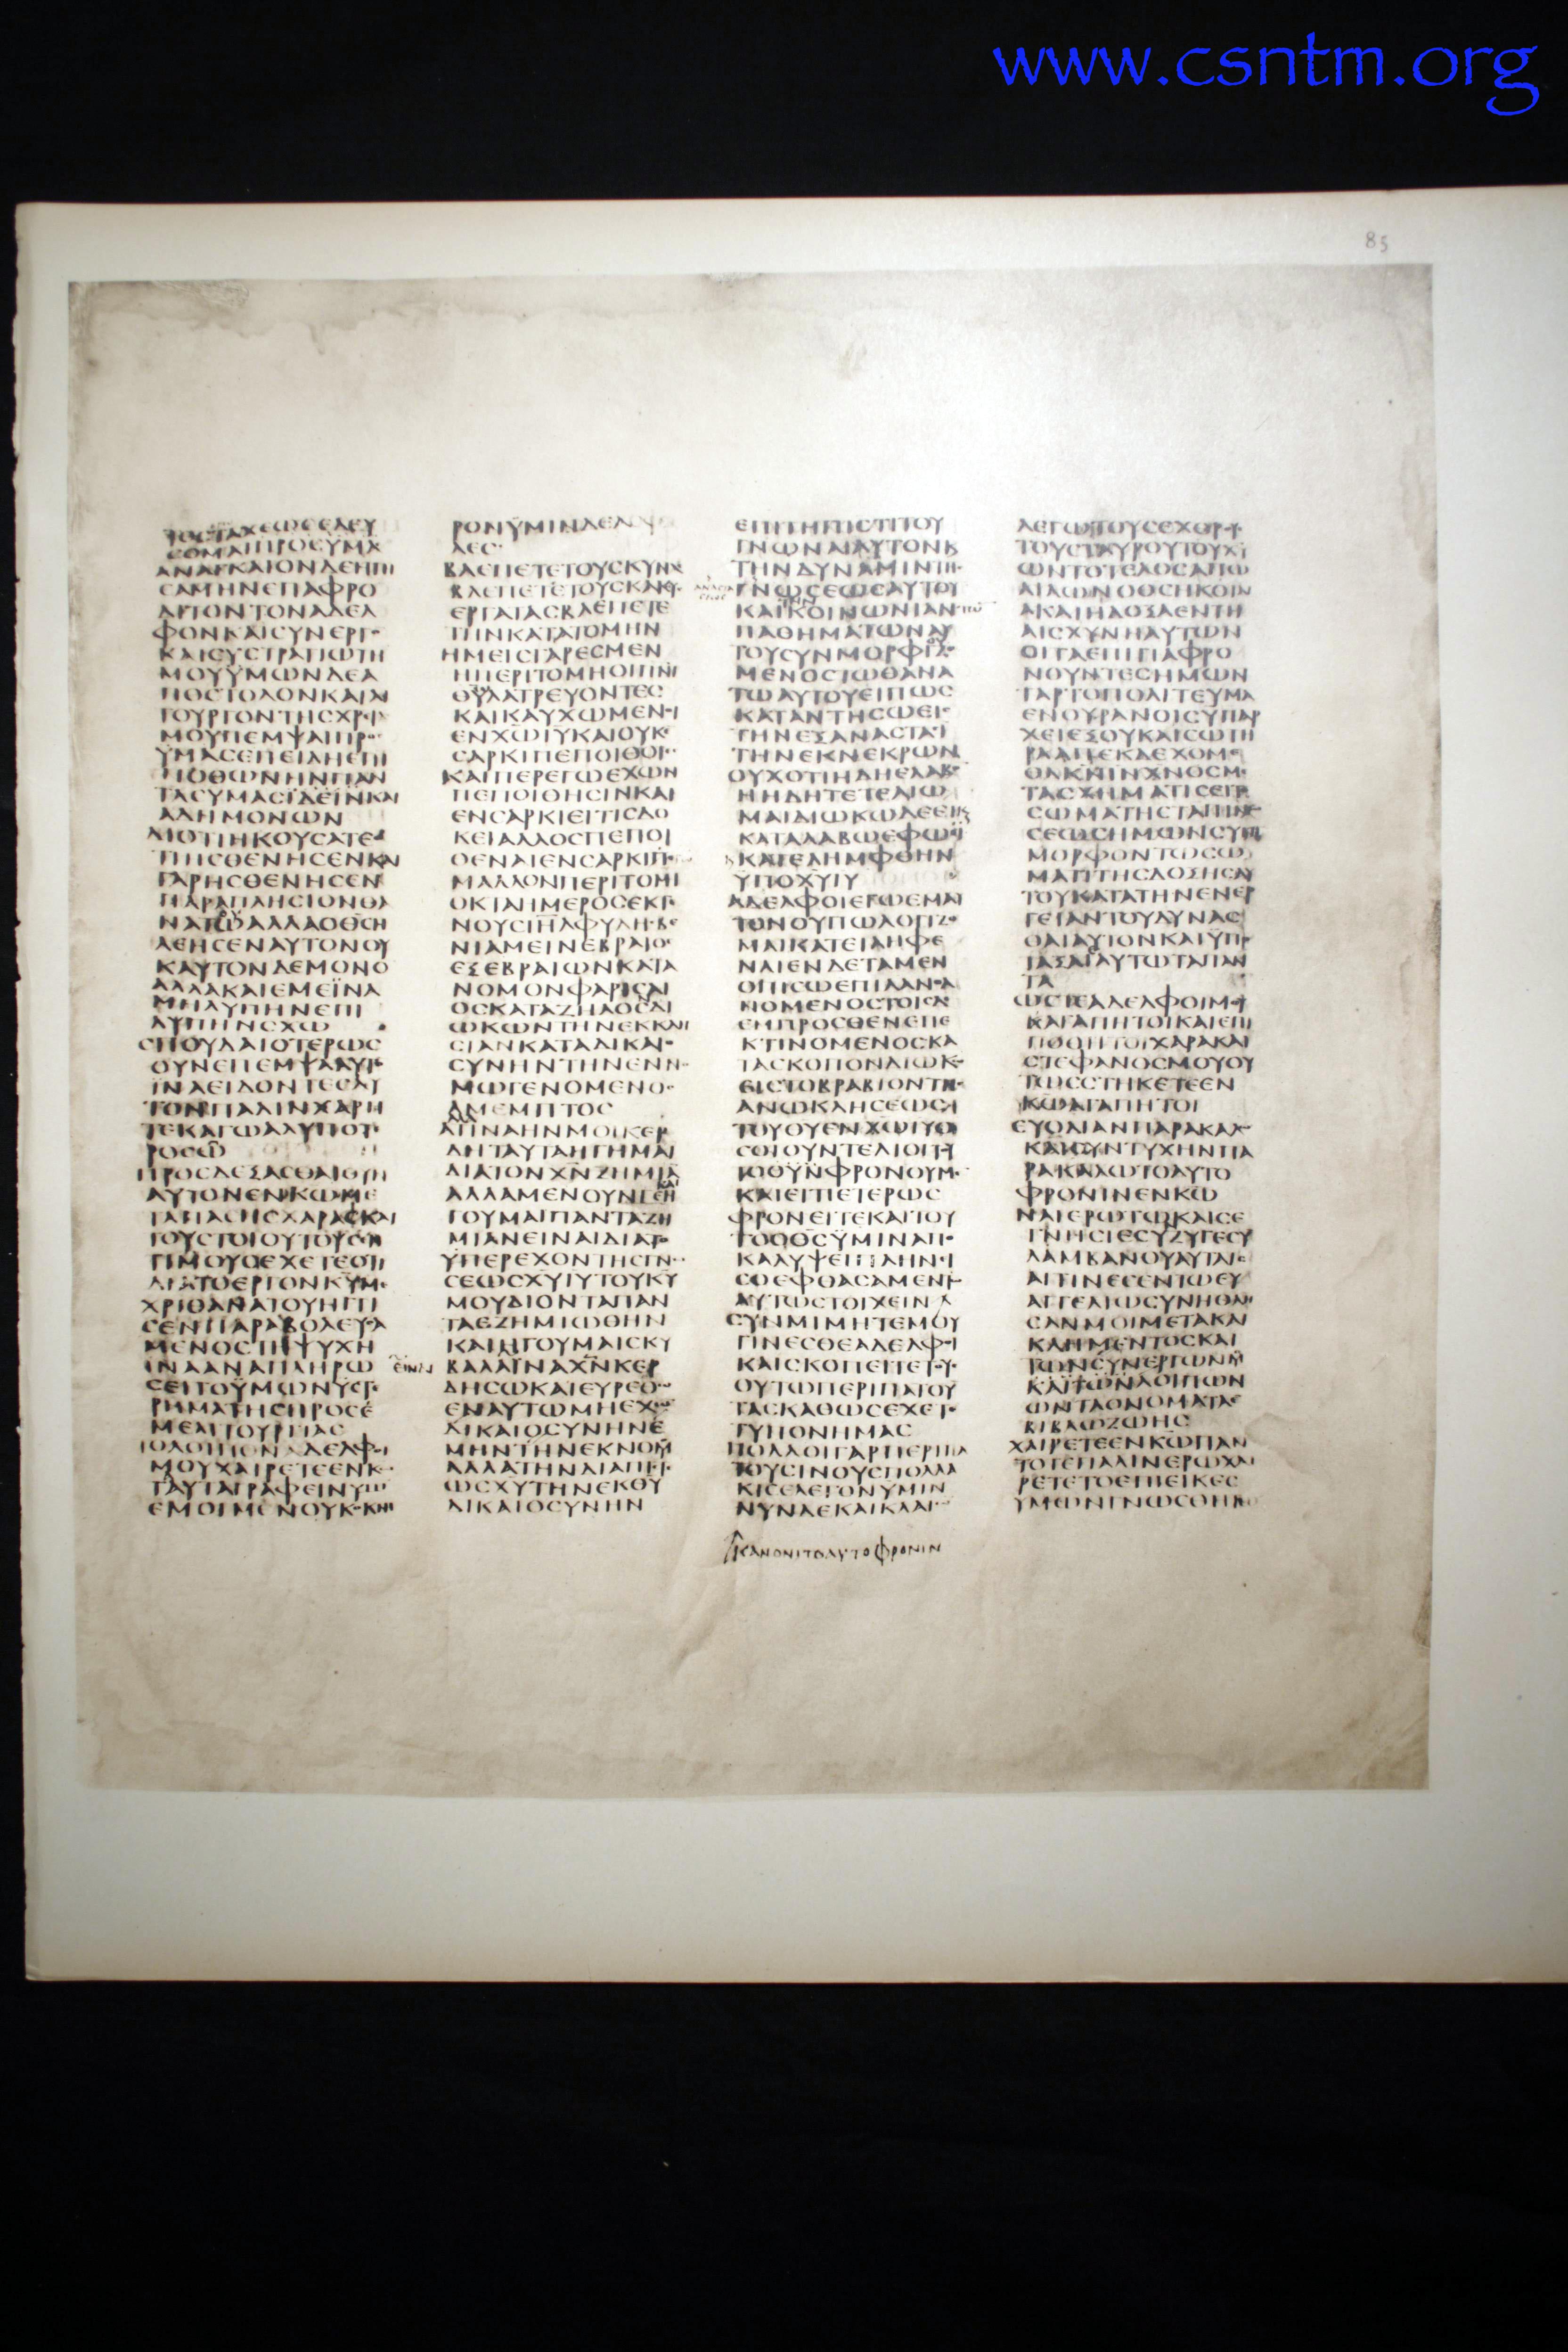 www.csntm.org
85
ΤΟΣΤΑΧΕΩΣΕΛΕΥ
ΣΟΜΑΙΠΡΟΣΥΜΑ
ΑΝΑΓΚΑΙΟΝΔΕΗΓΗ
ΣΑΜΗΝΕΠΑΦΡΟ
ΔΙΤΟΝΤΟΝΑΔΕΛ
ΦΟΝΚΑΙΣΥΝΕΡΓΟ
ΚΑΙΣΥΣΤΡΑΤΙΩΤΗ
ΜΟΥΫΜΩΝΔΕΑ
ΠΟΣΤΟΛΟΝΚΑΙΛΙ
ΤΟΥΡΓΟΝΤΗΣΧΡΙ
ΜΟΥΠΕΜΨΑΙΠΡΟ
ΥΜΑΣΕΠΕΙΔΗΕΠΙ
ΠΟΘΩΝΗΝΠΑΝ
ΤΑΣΥΜΑΣΪΔΕΙΝΚΑΙ
ΑΔΗΜΟΝΩΝ
ΔΙΟΤΙΗΚΟΥΣΑΤΕ
ΤΙΗΣΘΕΝΗΣΕΝΚΑΙ
ΓΑΡΗΣΘΕΝΗΣΕΝ
ΠΑΡΑΠΛΗΣΙΟΝΘΑ
ΝΑΤΩΑΛΛΑΟΘΣΗ
ΛΕΗΣΕΝΑΥΤΟΝΟΥ
ΚΑΥΤΟΝΔΕΜΟΝΟ
ΑΛΛΑΚΑΙΕΜΕΪΝΑ
ΜΗΛΥΠΗΝΕΠΙ
ΛΥΠΗΝΣΧΩ
ΣΠΟΥΔΑΙΟΤΕΡΩΣ
ΟΥΝΕΠΕΜΨΑΑΥΤ
ΙΝΑΕΙΔΟΝΤΕΣΑΥ
ΤΟΝΠΑΛΙΝΧΑΡΗ
ΤΕΚΑΓΩΑΛΥΠΟΤ
ΡΟΣΩ
ΠΡΟΣΔΕΞΑΣΘΑΙΟΥΝ
ΑΥΤΟΝΕΝΚΩΜΕ
ΤΑΠΑΣΗΣΧΑΡΑΣΚΑΙ
ΤΟΥΣΤΟΙΟΥΤΟΥΣΕΝ
ΤΙΜΟΥΣΕΧΕΤΕΟΤΙ
ΔΙΑΤΟΕΡΓΟΝΚΥΜΕ
ΧΡΙΘΑΝΑΤΟΥΗΓΓΙ
ΣΕΝΠΑΡΑΒΟΛΕΥΣΑ
ΜΕΝΟΣΤΗΨΥΧΗ
ΙΝΑΑΝΑΠΛΗΡΩ
ΣΕΙΤΟΫΜΩΝΥΣΤΕ
ΡΗΜΑΤΗΣΠΡΟΣΕ
ΜΕΛΙΤΟΥΡΓΙΑΣ
ΤΟΛΟΙΠΟΝΑΔΕΛΦΟΙ
ΜΟΥΧΑΙΡΕΤΕΕΝΚ
ΤΑΥΤΑΓΡΑΦΕΙΝΥΜΙ
ΕΜΟΙΜΕΝΟΥΚΟΚΝΗ
ΡΟΝΫΜΙΝΔΕΑΣΦ
ΛΕΣ
ΒΛΕΠΕΤΕΤΟΥΣΚΥΝΑΣ
ΒΛΕΠΕΤΕΤΟΥΣΚΑΚΟΥ
ΕΡΓΑΤΑΣΒΛΕΠΕΤΕ
ΤΗΝΚΑΤΑΤΟΜΗΝ
ΗΜΕΙΣΓΑΡΕΣΜΕΝ
ΗΠΕΡΙΤΟΜΗΟΙΠΝΙ
ΘΥΛΑΤΡΕΥΟΝΤΕΣ
ΚΑΙΚΑΥΧΩΜΕΝΟΙ
ΕΝΧΩΙΥΚΑΙΟΥΚ
ΣΑΡΚΙΠΕΠΟΙΘΟΤΕΣ
ΚΑΙΠΕΡΕΓΩΕΧΩΝ
ΠΕΠΟΙΘΗΣΙΝΚΑΙ
ΕΝΣΑΡΚΙΕΙΤΙΣΔΟ
ΚΕΙΑΛΛΟΣΠΕΠΟΙ
ΘΕΝΑΙΕΝΣΑΡΚΙΕΓ
ΜΑΛΛΟΝΠΕΡΙΤΟΜΗ
ΟΚΤΑΗΜΕΡΟΣΕΚΓΕ
ΝΟΥΣΙΗΛΦΥΛΗΣΒΕ
ΝΙΑΜΕΙΝΕΒΡΑΙΟΣ
ΕΞΕΒΡΑΙΩΝΚΑΤΑ
ΝΟΜΟΝΦΑΡΙΣΑΙ
ΟΣΚΑΤΑΖΗΛΟΣΔΙ
ΩΚΩΝΤΗΝΕΚΚΛΗ
ΣΙΑΝΚΑΤΑΔΙΚΑΙΟ
ΣΥΝΗΝΤΗΝΕΝΝΟ
ΜΩΓΕΝΟΜΕΝΟΣ
ΑΜΕΜΠΤΟΣ
ΑΤΙΝΑΗΝΜΟΙΚΕΡ
ΔΗΤΑΥΤΑΗΓΗΜΑΙ
ΔΙΑΤΟΝΧΝΖΗΜΙΑ
ΑΛΛΑΜΕΝΟΥΝΓΕΗ
ΓΟΥΜΑΙΠΑΝΤΑΖΗ
ΜΙΑΝΕΙΝΑΙΔΙΑΤΟ
ΫΠΕΡΕΧΟΝΤΗΣΓΝΩ
ΣΕΩΣΧΥΙΥΤΟΥΚΥ
ΜΟΥΔΙΟΝΤΑΠΑΝ
ΤΑΕΖΗΜΙΩΘΗΝ
ΚΑΙΗΓΟΥΜΑΙΣΚΥ
ΕΙΝΑΙ
ΒΑΛΑΪΝΑΧΝΚΕΡ
ΔΗΣΩΚΑΙΕΥΡΕΘΩ
ΕΝΑΥΤΩΜΗΕΧΩΝ
ΔΙΚΑΙΟΣΥΝΗΝΕ
ΜΗΝΤΗΝΕΚΝΟΜ
ΑΛΛΑΤΗΝΔΙΑΠΙΣΤ
ΩΣΧΥΤΗΝΕΚΘΥ
ΔΙΚΑΙΟΣΥΝΗΝ
ΕΠΙΤΗΠΙΣΤΙΤΟΥ
ΓΝΩΝΑΙΑΥΤΟΝΚ
ΤΗΝΔΥΝΑΜΙΝΤΗΣ
ΓΝΩΣΕΩΣΑΥΤΟΥ
ΚΑΙΚΟΙΝΩΝΙΑΝ
ΠΑΘΗΜΑΤΩΝΑΥ
ΤΟΥΣΥΝΜΟΡΦΙΖΟ
ΜΕΝΟΣΤΩΘΑΝΑ
ΤΩΑΥΤΟΥΕΙΠΩΣ
ΚΑΤΑΝΤΗΣΩΕΙΣ
ΤΗΝΕΞΑΝΑΣΤΑΣΙ
ΤΗΝΕΚΝΕΚΡΩΝ
ΟΥΧΟΤΙΗΔΗΕΛΑΒΟ
ΗΗΔΗΤΕΤΕΛΙΩ
ΜΑΙΔΙΩΚΩΔΕΕΙΚ
ΚΑΤΑΛΑΒΩΕΦΩ
ΚΑΤΕΛΗΜΦΘΗΝ
ΥΠΟΧΥΙΥ
ΑΔΕΛΦΟΙΕΓΩΕΜΑΥ
ΤΟΝΟΥΠΩΛΟΓΙΖΟ
ΜΑΙΚΑΤΕΙΛΗΦΕ
ΝΑΙΕΝΔΕΤΑΜΕΝ
ΟΠΙΣΩΕΠΙΛΑΝΘΑ
ΝΟΜΕΝΟΣΤΟΙΣΔΕ
ΕΜΠΡΟΣΘΕΝΕΠΕ
ΚΤΙΝΟΜΕΝΟΣΚΑ
ΤΑΣΚΟΠΟΝΔΙΩΚΩ
ΕΙΣΤΟΒΡΑΒΙΟΝΤΗΣ
ΑΝΩΚΛΗΣΕΩΣ
ΤΟΥΘΥΕΝΧΩΙΥΟ
ΣΟΙΟΥΝΤΕΛΙΟΙΤΟΥ
ΤΟΦΡΟΝΟΥΜΕ
ΚΑΙΕΙΤΙΕΤΕΡΩΣ
ΦΡΟΝΕΙΤΕΚΑΙΤΟΥ
ΤΟΟΘΣΥΜΙΝΑΠΟ
ΚΑΛΥΨΕΙΠΛΗΝΕΙ
ΣΟΕΦΘΑΣΑΜΕΝΤ
ΑΥΤΩΣΤΟΙΧΕΙΝ
ΣΥΝΜΙΜΗΤΕΜΟΥ
ΓΙΝΕΣΘΕΑΔΕΛΦΟΙ
ΚΑΙΣΚΟΠΕΙΤΕΤΟΥΣ
ΟΥΤΩΠΕΡΙΠΑΤΟΥ
ΤΑΣΚΑΘΩΣΕΧΕΤΕ
ΤΥΠΟΝΗΜΑΣ
ΠΟΛΛΟΙΓΑΡΠΕΡΙΠΑ
ΤΟΥΣΙΝΟΥΣΠΟΛΛΑ
ΚΙΣΕΛΕΓΟΝΥΜΙΝ
ΝΥΝΔΕΚΑΙΚΛΑΙΩΝ
ΚΑΝΟΝΙΤΟΑΥΤΟΦΡΟΝΙΝ
ΛΕΓΩΤΟΥΣΕΧΘΡΟΥ
ΤΟΥΣΤΑΥΡΟΥΤΟΥΧΥ
ΩΝΤΟΤΕΛΟΣΑΠΩ
ΛΙΑΩΝΟΘΣΗΚΟΙΛΙ
ΑΚΑΙΗΔΟΞΑΕΝΤΗ
ΑΙΣΧΥΝΗΑΥΤΩΝ
ΟΙΤΑΕΠΙΓΙΑΦΡΟ
ΝΟΥΝΤΕΣΗΜΩΝ
ΓΑΡΤΟΠΟΛΙΤΕΥΜΑ
ΕΝΟΥΡΑΝΟΙΣΥΠΑΡ
ΧΕΙΕΞΟΥΚΑΙΣΩΤΗ
ΡΑΑΠΕΚΔΕΧΟΜΕ
ΘΑΚΝΙΝΧΝΟΣΜΕ
ΤΑΣΧΗΜΑΤΙΣΕΙΤΟ
ΣΩΜΑΤΗΣΤΑΠΙΝΩ
ΣΕΩΣΗΜΩΝΣΥΜ
ΜΟΡΦΟΝΤΩΣΩ
ΜΑΤΙΤΗΣΔΟΞΗΣΑΥ
ΤΟΥΚΑΤΑΤΗΝΕΝΕΡ
ΓΕΙΑΝΤΟΥΔΥΝΑΣ
ΘΑΙΑΥΤΟΝΚΑΙΫΠΟ
ΤΑΞΑΙΑΥΤΩΤΑΠΑΝ
ΤΑ
ΩΣΤΕΑΔΕΛΦΟΙΜΟΥ
ΚΑΓΑΠΗΤΟΙΚΑΙΕΠΙ
ΠΟΘΗΤΟΙΧΑΡΑΚΑΙ
ΣΤΕΦΑΝΟΣΜΟΥΟΥ
ΤΩΣΣΤΗΚΕΤΕΕΝ
ΚΩΑΓΑΠΗΤΟΙ
ΕΥΟΔΙΑΝΠΑΡΑΚΑΛΩ
ΚΑΙΣΥΝΤΥΧΗΝΠΑ
ΡΑΚΑΛΩΤΟΑΥΤΟ
ΦΡΟΝΙΝΕΝΚΩ
ΝΑΙΕΡΩΤΩΚΑΙΣΕ
ΓΝΗΣΙΕΣΥΖΥΓΕΣΥ
ΛΑΜΒΑΝΟΥΑΥΤΑΙΣ
ΑΙΤΙΝΕΣΕΝΤΩΕΥ
ΑΓΓΕΛΙΩΣΥΝΗΘΛΗ
ΣΑΝΜΟΙΜΕΤΑΚΑΙ
ΚΛΗΜΕΝΤΟΣΚΑΙ
ΤΩΝΣΥΝΕΡΓΩΝΜ
ΚΑΙΤΩΝΛΟΙΠΩΝ
ΩΝΤΑΟΝΟΜΑΤΑΕ
ΒΙΒΛΩΖΩΗΣ
ΧΑΙΡΕΤΕΕΝΚΩΠΑΝ
ΤΟΤΕΠΑΛΙΝΕΡΩΧΑΙ
ΡΕΤΕΤΟΕΠΙΕΙΚΕΣ
ΥΜΩΝΓΝΩΣΘΗΤΩ